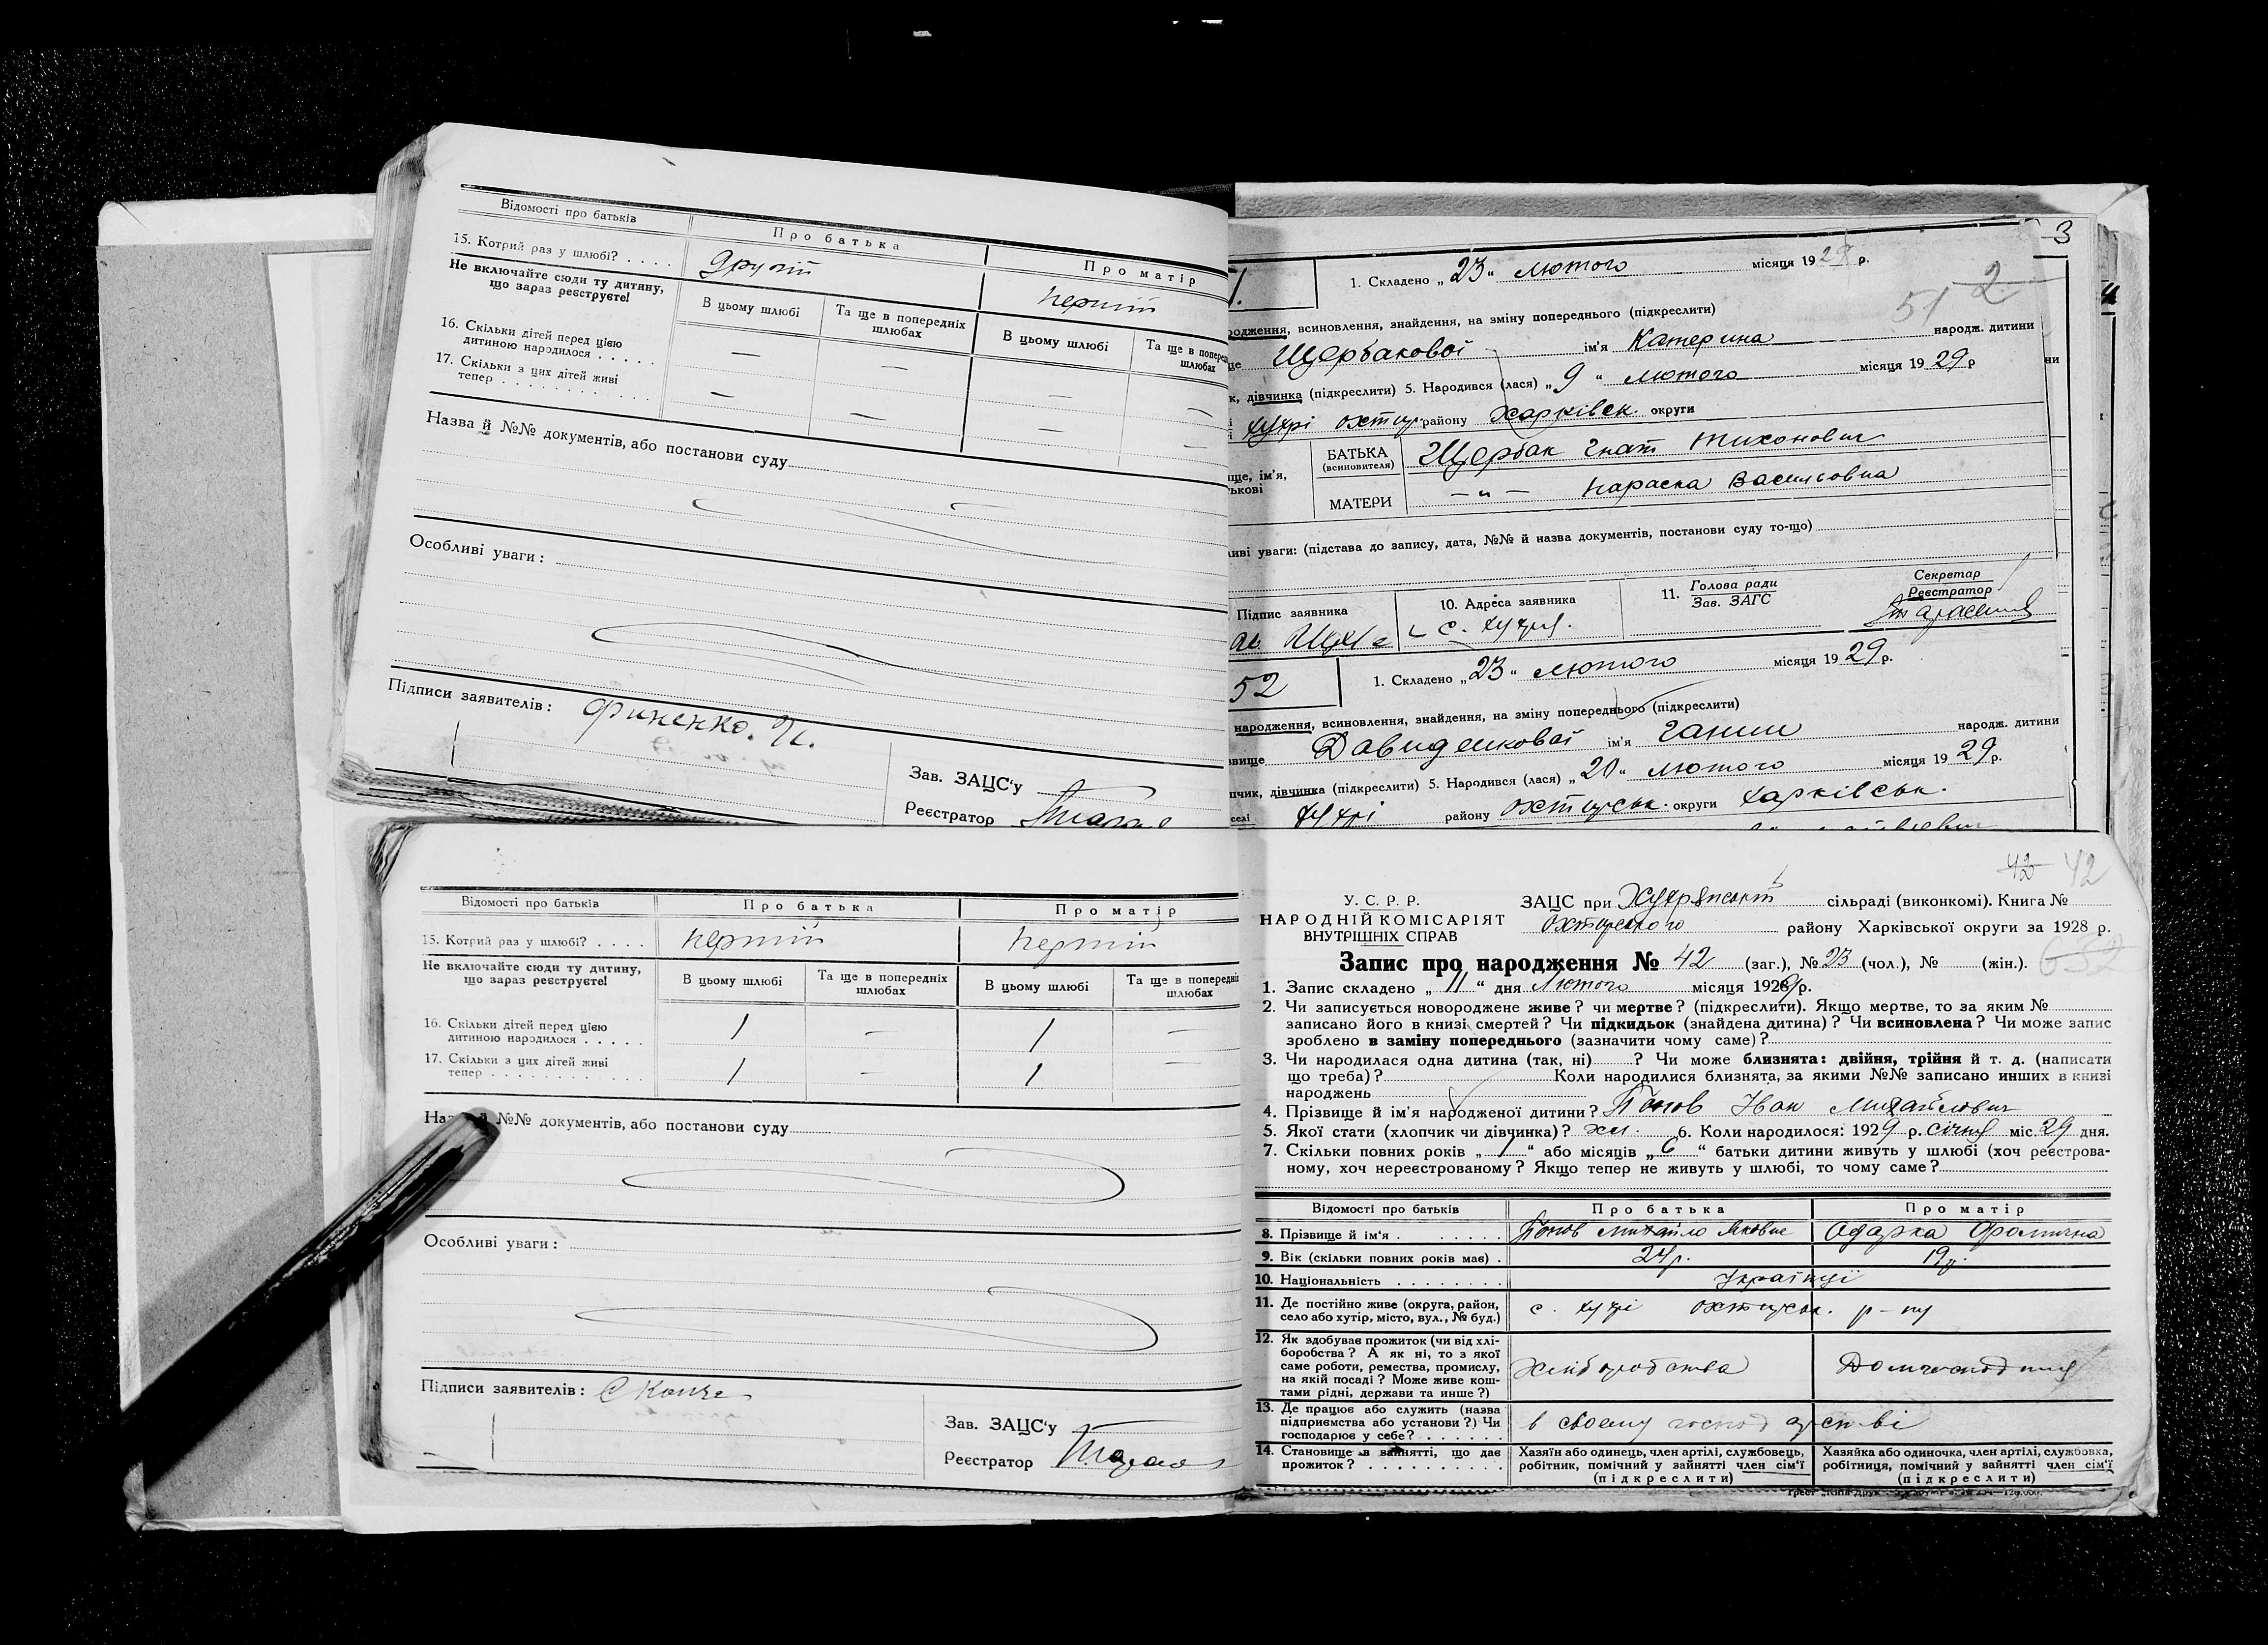 Відомості про батьків
Про батька
Про матір
15. Котрий раз у шлюбі? . . . .
другій
першій
Не включайте сюди ту дитину,
що зараз реєструєте!
В цьому шлюбі
Та ще в попередніх
шлюбах
В цьому шлюбі
Та ще в поперед
шлюбах
16. Скільки дітей перед цією
дитиною народилося . . . . .
— — — —
17. Скільки з цих дітей живі
тепер . . . . . . . . . . . .
— — — —
Назва й №№ документів, або постанови суду
Особливі уваги:
Підписи заявителів: Финенко. И.
Зав. ЗАЦС'у
Реєстратор
3
1. Складено „23“ лютого місяця 1929 р.
51 2
родження, всиновлення, знайдення, на зміну попереднього (підкреслити)
Щербакової ім'я Катерина народж. дитини
к, дівчинка (підкреслити) 5. Народився (лася) „9“ лютого місяця 1929 р
хухрі охтир району Харківськ. округи
ще, ім'я,
ькові
БАТЬКА
(всиновителя)
Щербак Гнат Тихонович
МАТЕРИ
—"— Параска Василовна
иві уваги: (підстава до запису, дата, №№ й назва документів, постанови суду то-що)
Підпис заявника
10. Адреса заявника
с. хухря.
11. Голова ради
Зав. ЗАГС
Секретар
Реєстратор
52
1. Складено „23“ лютого місяця 1929 р.
народження, всиновлення, знайдення, на зміну попереднього (підкреслити)
вище Давиденкової ім'я Ганни народж. дитини
пчик, дівчинка (підкреслити) 5. Народився (лася) „20“ лютого місяця 1929 р.
селі хухрі району охтирськ. округи харківськ.
Відомості про батьків
Про батька
Про матір
15. Котрий раз у шлюбі? . . . .
першій
першій
Не включайте сюди ту дитину,
що зараз реєструєте!
В цьому шлюбі
Та ще в попередніх
шлюбах
В цьому шлюбі
Та ще в попередніх
шлюбах
16. Скільки дітей перед цією
дитиною народилося . . . . .
1 — 1 —
17. Скільки з цих дітей живі
тепер . . . . . . . . . . . .
1 — 1 —
На й №№ документів, або постанови суду
Особливі уваги:
Підписи заявителів:
Зав. ЗАЦС'у
Реєстратор
42 42
У. С. Р. Р.
НАРОДНІЙ КОМІСАРІЯТ
ВНУТРІШНІХ СПРАВ
ЗАЦС при Хухрянській сільраді (виконкомі). Книга №
Охтирського району Харківської округи за 1928 р.
Запис про народження № 42 (заг.), № 23 (чол.), № (жін.).
1. Запис складено „11“ дня Лютого місяця 1929 р.
2. Чи записується новороджене живе? чи мертве? (підкреслити). Якщо мертве, то за яким №
записано його в книзі смертей? Чи підкидьок (знайдена дитина)? Чи всиновлена? Чи може запис
зроблено в заміну попереднього (зазначити чому саме)?
3. Чи народилася одна дитина (так, ні)? Чи може близнята: двійня, трійня й т. д. (написати
що треба)? Коли народилися близнята, за якими №№ записано инших в книзі
народжень
4. Прізвище й ім'я народженої дитини? Попов Іван Михайлович
5. Якої стати (хлопчик чи дівчинка)? хл. 6. Коли народилося: 1929 р. січня міс. 29 дня.
7. Скільки повних років „1“ або місяців „6“ батьки дитини живуть у шлюбі (хоч реєстрова-
ному, хоч нереєстрованому? Якщо тепер не живуть у шлюбі, то чому саме?
Відомості про батьків
Про батька
Про матір
8. Прізвище й ім'я . . . . . .
Попов Михайло Якович
Одарка Фомична
9. Вік (скільки повних років має) .
24 р.
19 р.
10. Національність . . . . . . . .
Українці
11. Де постійно живе (округа, район,
село або хутір, місто, вул., № буд.)
с. хухрі охтирськ. р-ну
12. Як здобуває прожиток (чи від хлі-
боробства? А як ні, то з якої
саме роботи, ремества, промислу,
на якій посаді? Може живе кош-
тами рідні, держави та инше?)
Хліборобства
13. Де працює або служить (назва
підприємства або установи?) Чи
господарює у себе? . . . . . .
в своему господарстві
14. Становище в зайнятті, що дає
прожиток? . . . . . . . . . .
Хазяїн або одинець, член артілі, службовець,
робітник, помічний у зайнятті член сім'ї
(підкреслити)
Хазяйка або одиночка, член артілі, службовка,
робітниця, помічний у зайнятті член сім'ї
(підкреслити)